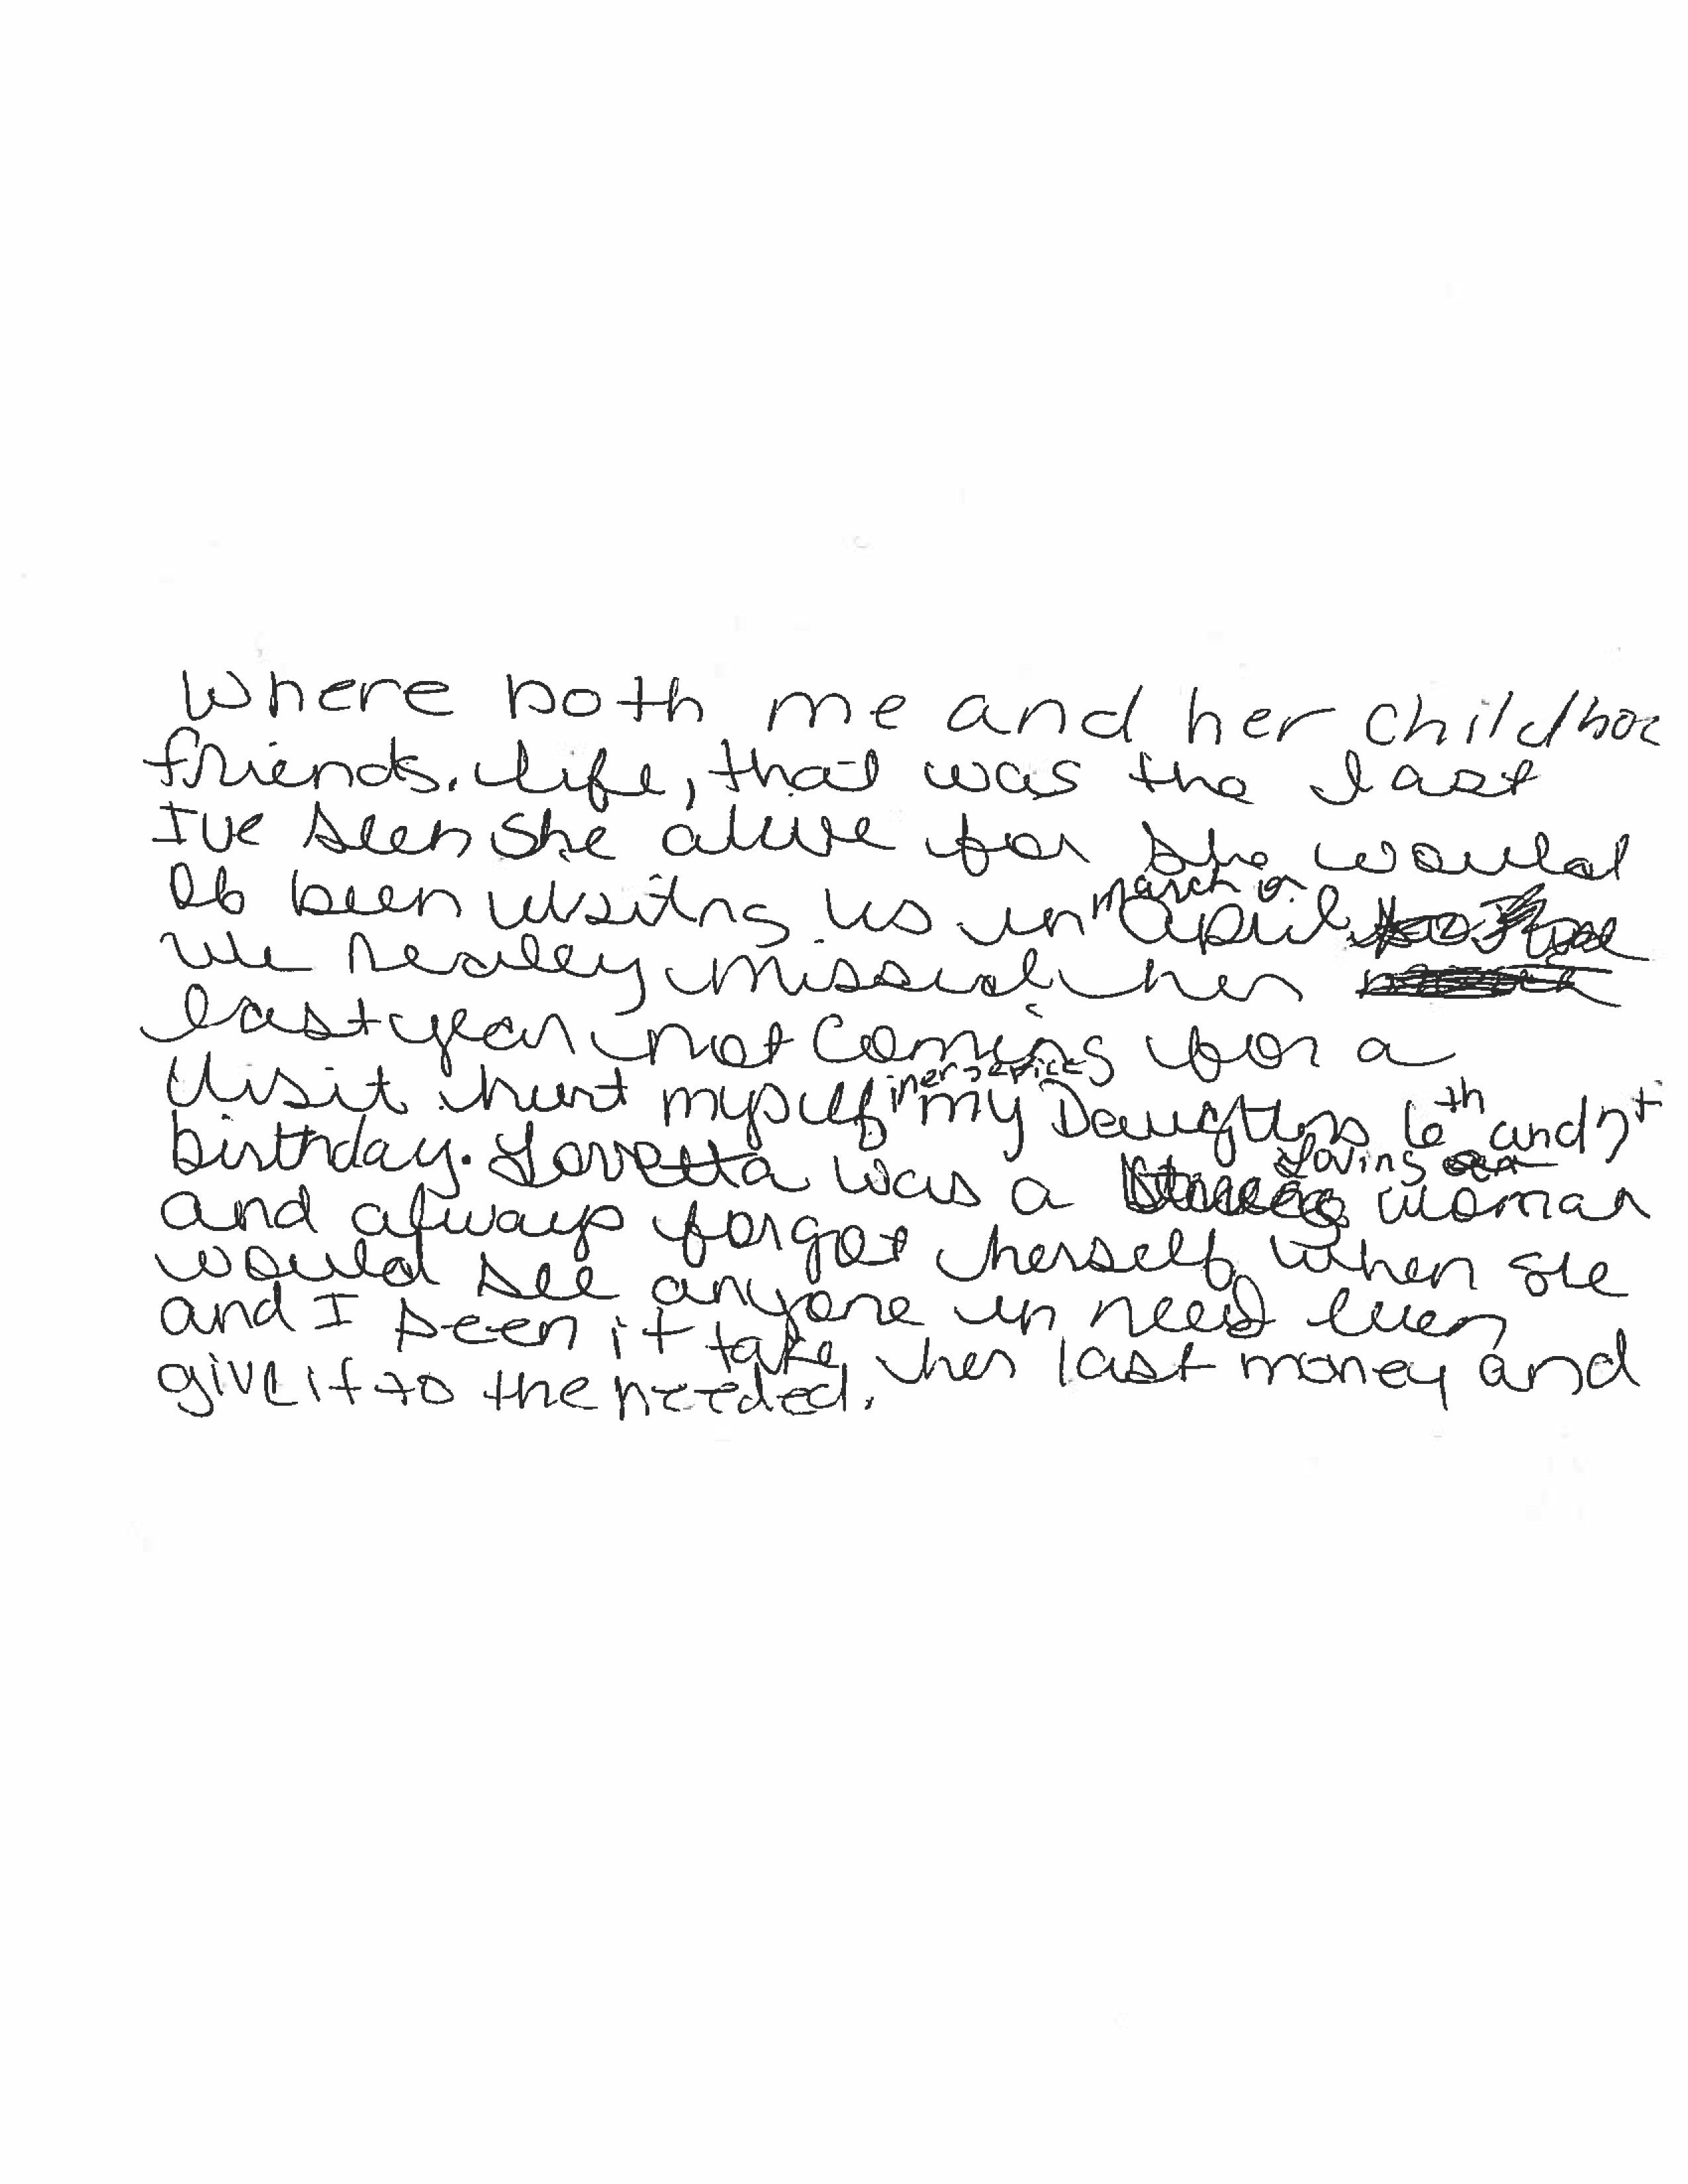 Where both me and her childhoo
friends. life, that was the last
I've seen she alive for she would
of been visitng us in march or April
we realley missed her
last year not coming for a
visit hurt myself in her service my Daughters 6th and 7t
birthday. Lovetta was a Loving woman
and always forgot herself when she
would see anyone in need even
and I seen it take her last money and
give it to the needed.